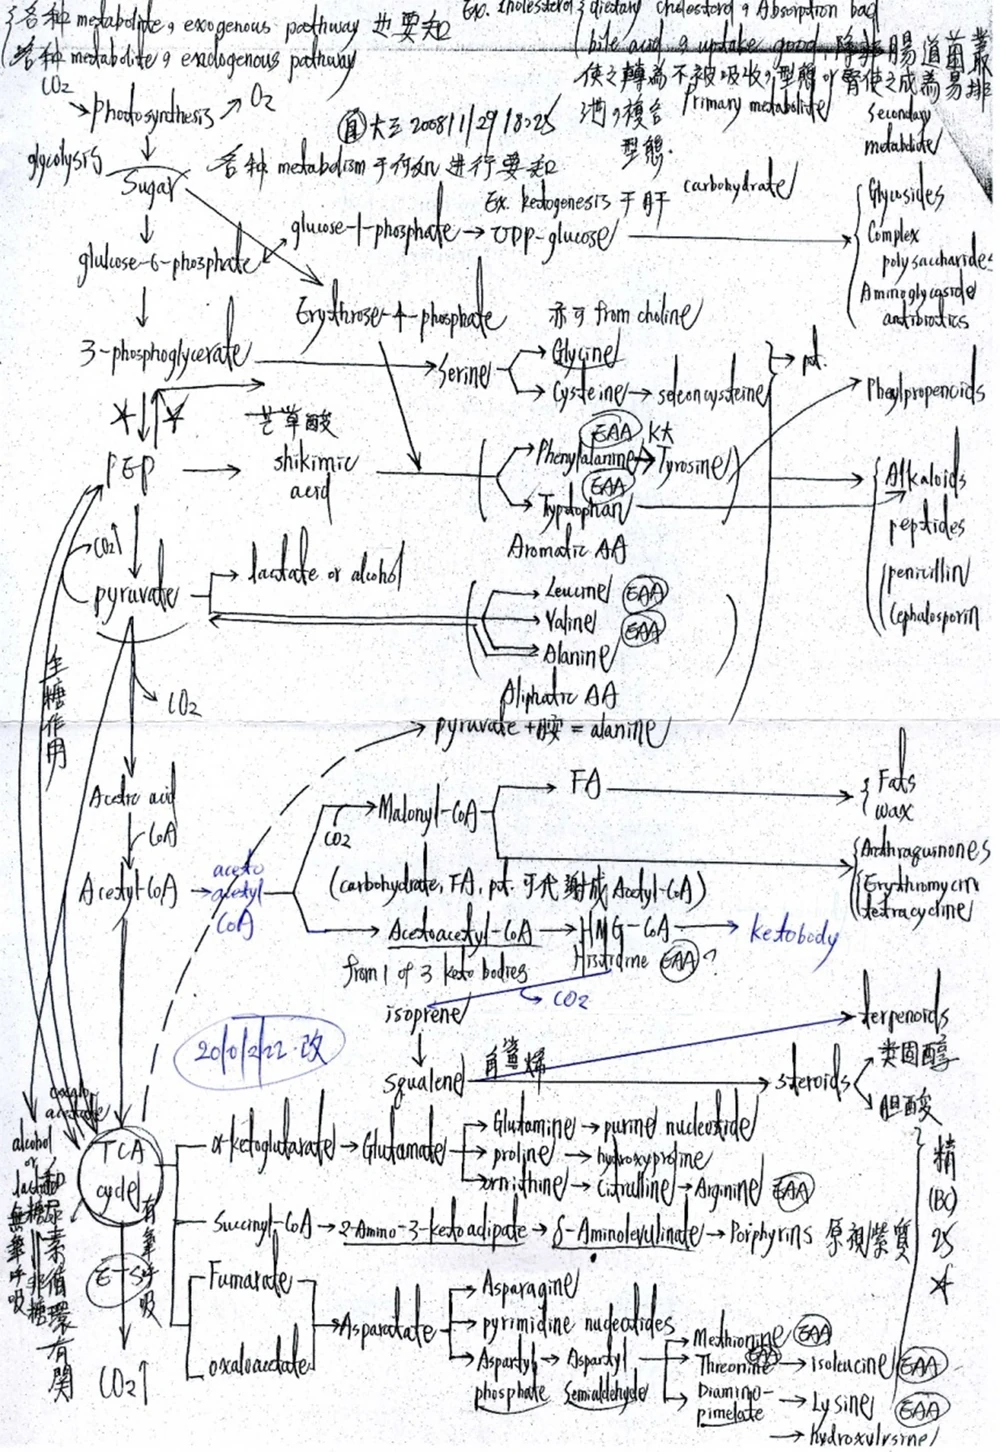 各种 metabolite, exogenous pathway 也要知
各种 metabolite, endogenous pathway
Ex. cholesterol { dietary cholesterol, Absorption
bile acid, uptake good 腸道菌叢
使之轉為不被吸收,型態 or 腎使之成為易排
泄,複合
型態.
CO2
photosynthesis
O2
大三 2008/11/29/18:25
Primary metabolite
secondary
metabolite
glycolysis
sugar
各种 metabolism 于何処进行要知
Ex. ketogenesis 于肝
carbohydrate
Glycosides
complex
polysaccharides
Aminoglycoside
antibiotics
glucose-1-phosphate → UDP-glucose
glulcose-6-phosphate
Erythrose-4-phosphate
亦可 from choline
3-phosphoglycerate
serine
Glycine
Cysteine → seleoncysteine
pt.
Pheylpropenoids
莽草酸
PEP
shikimic
acid
EAA
Phenylalanine → Tyrosine
EAA
Typtophan
Aromatic AA
Alkaloids
peptides
penicillin
Cephalosporin
CO2↑
pyruvate
lactate or alcohol
Leucine EAA
Valine EAA
Alanine
Aliphatic AA
生糖作用
CO2
pyruvate + 胺 = alanine
Acetic acid
CoA
Acetyl-CoA
aceto
acetyl
CoA
CO2
Malonyl-CoA
FA
Fats
wax
Anthraquinones
Erythromycin
tetracycline
(carbohydrate, FA, pt. 可代謝成 Acetyl-CoA)
Acetoacetyl-CoA → HMG-CoA → ketobody
from 1 of 3 keto bodies
Histidine EAA ?
CO2
isoprene
2010/2/22.改
squalene
角鯊烯
terpenoids
steroids
类固醇
胆酸
TCA
cycle
alcohol
or
無氧呼吸
有氧呼吸
和尿素循環有関
E-S
CO2↑
α-ketoglutarate → Glutamate
Glutamine → purine nucleotide
proline → hydroxyproline
ornithine → citrulline → Arginine EAA
Succinyl-CoA → 2-Amino-3-ketoadipate → δ-Aminolevulinate → Porphyrins 原視紫質
Fumarate
oxaloacetate
Aspartate
Asparagine
pyrimidine nucleotides
Aspartyl → Aspartyl
phosphate Semialdehyde
Methionine EAA
Threonine EAA → isoleucine EAA
Diamino-
pimelate → Lysine EAA
→ hydroxylysine
精
(BC)
25